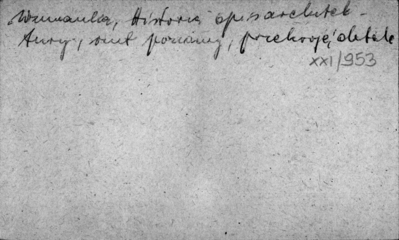 Wzmianka, Historia, opis architek-
tury, rzut poziomy, przekroje, detale
XXI/953